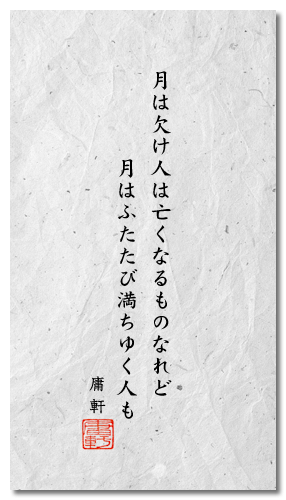 月は欠け人は亡くなるものなれど
月はふたたび満ちゆく人も
庸軒
庸軒